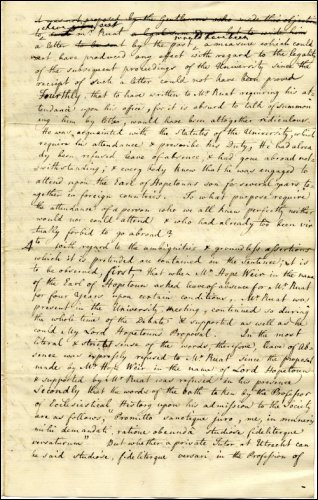 it was not proposed by the Gentlemen who made this objection
to Mr Ruat
a letter to be sent by the post, a measure which could
not have produced any effect with regard to the legality
of the subsequent proceedings of the University since the
receipt of such a letter could not have been proved
Fourthly, that to have written to Mr Ruat requiring his at-
tendance upon his office, for it is absurd to talk of summon
ing him by letter, would have been altogether ridiculous
He was acquainted with the Statutes of the University, which
require his attendance & prescribe his Duty; He had alrea
dy been refused leave of absence, & had gone abroad not
withstanding; & every body knew that he was engaged to
attend upon the Earl of Hopetouns son for several years to-
gether in foreign countries. To what purpose require
the attendance of a person who we all knew perfectly neither
would nor could attend & who had already too been vir
tually forbid to go abroad?
4to With regard to the ambiguities & groundless assertions
which it is pretended are contained in the Sentence; it is
to be observed, first, that when Mr Hope Weir in the name
of the Earl of Hopetoun asked leave of absence for Mr Ruat
for four Years upon certain conditions, Mr Ruat was
present in the University Meeting, continued so during
the whole time of the Debate & supported as well as he
could my Lord Hopetouns Proposal. In the most
literal & strict sense of the words, therefore, leave of Ab-
sence was expressly refused to Mr Ruat since the proposal
made by Mr Hope Weir in the name of Lord Hopetoun
& supported by Mr Ruat was refused in his presence
Secondly that the words of the oath taken by the Professor
of Ecclesiastical History upon his admission to the Society
are as follows, "Promitto sancteque juro, me, in munere
mihi demandato, ratione obeunda studiose fideliterque
versaturum" But whether a private Tutor at Utrecht can
be said studiose, fideliterque versari in the Profession of